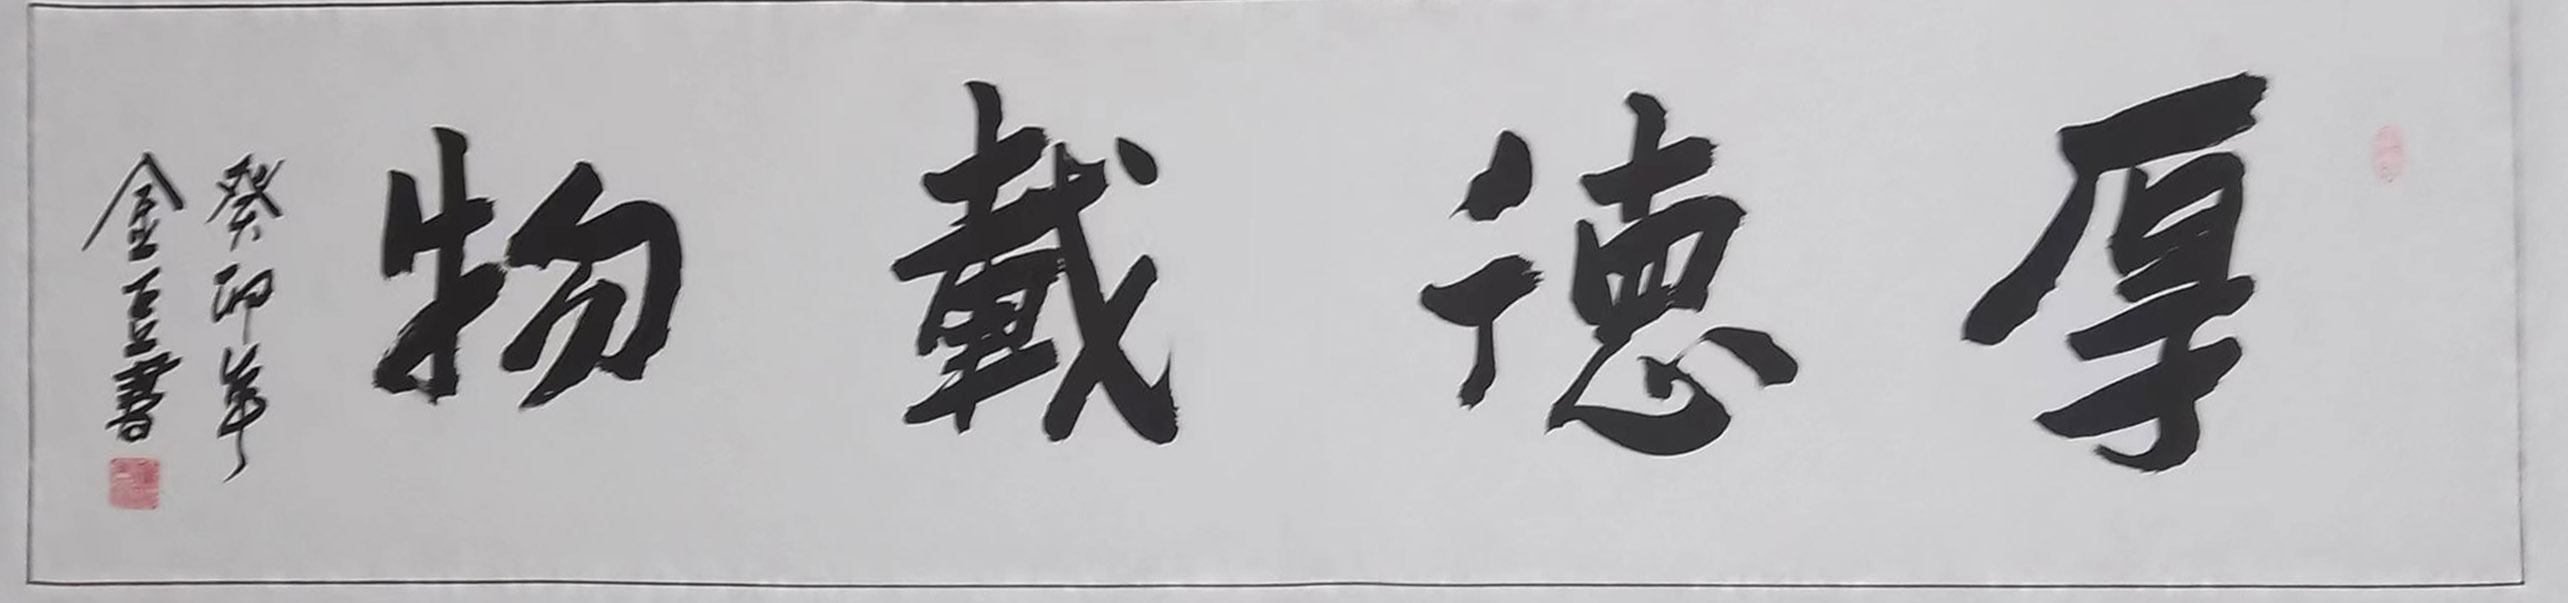 厚德載物
癸卯年
金玉書